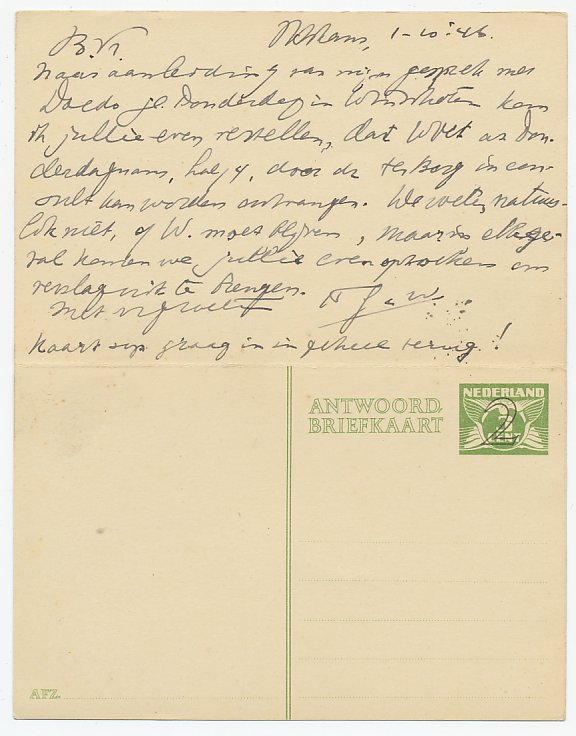 B.V. 1-10-'46.
Naar aanleiding van mijn gesprek met
Doedo j.l. Donderdag in Winschoten kan
ik jullie even vertellen, dat W
derdagnam. half 4, door dr. ter Borg in con-
sult kan worden ontvangen. We weten natuur-
lijk niet, of W. moet blijven, maar in elk ge-
val komen we jullie even opzoeken om
verslag uit te brengen.
Met
Kaart graag in geheel terug!
ANTWOORD,
BRIEFKAART
NEDERLAND
2
AFZ.